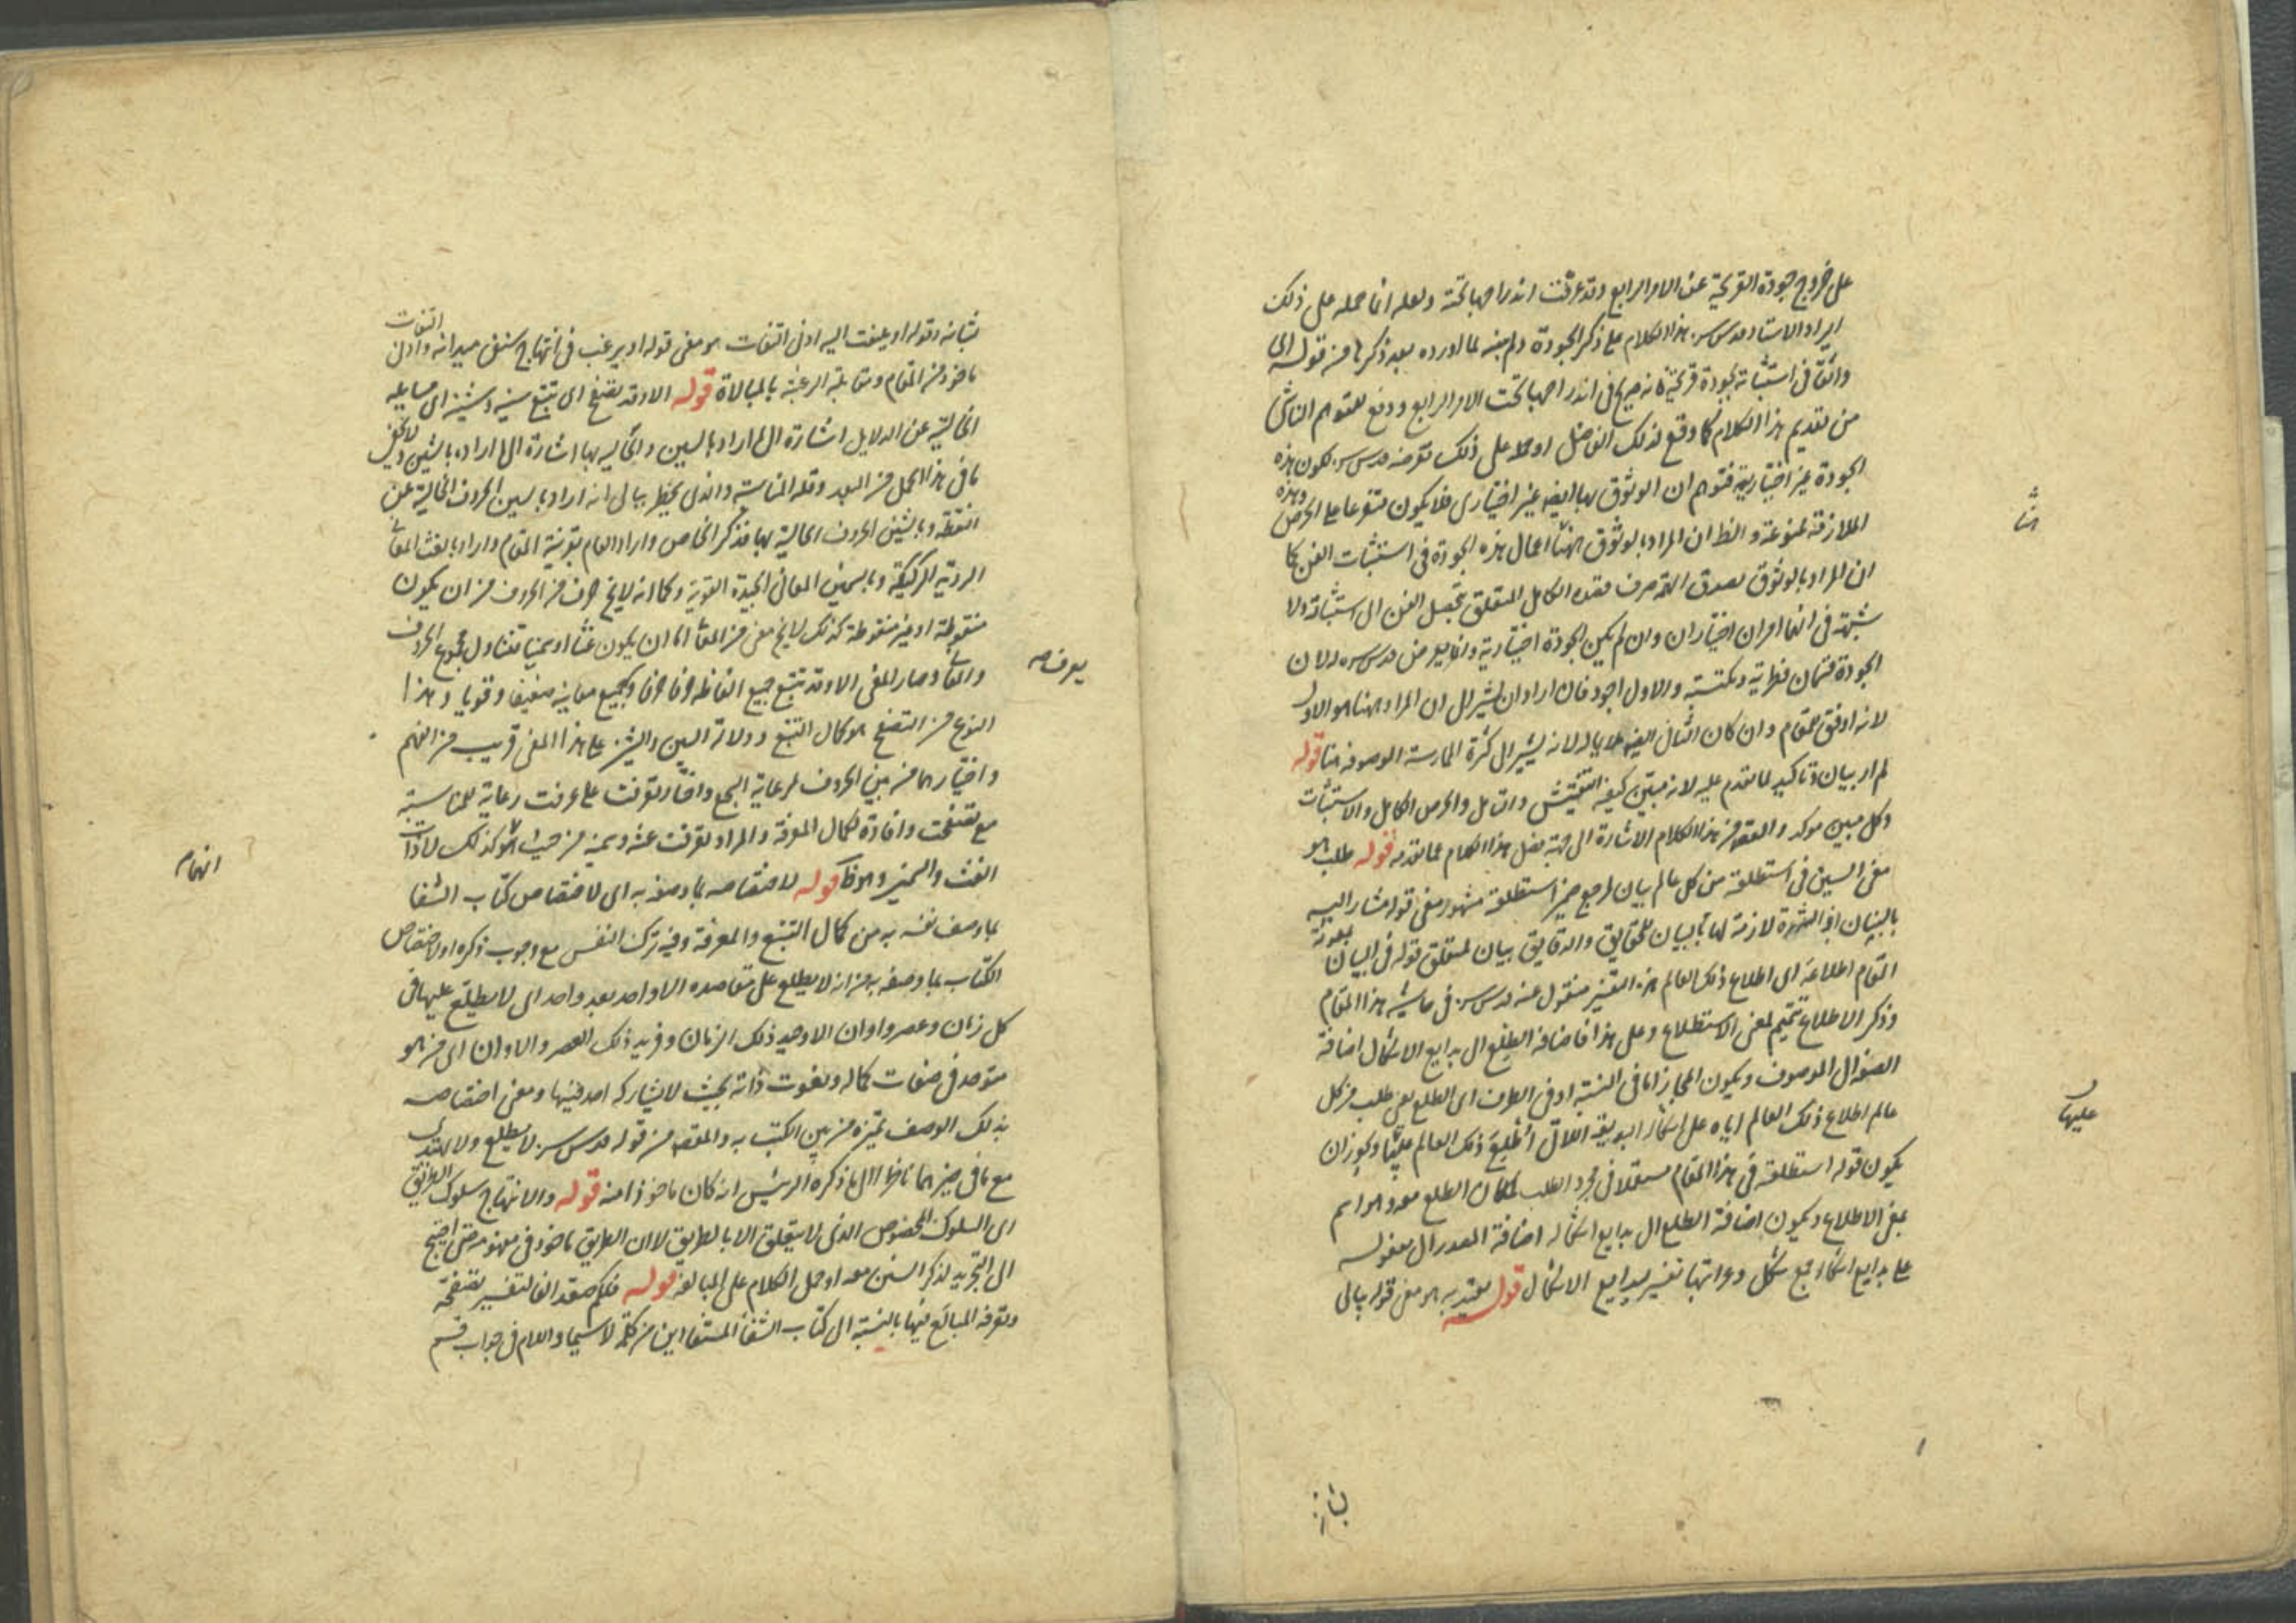 على خروج جودة القريحة عن الامر الرابع وقد عرفت اندراجها تحته ولعله انما حمله على ذلك
ايراد الاستاد قدس سره هذا الكلام على ذكر الجودة ولم ينبه لما اورده بعد ذكرها من قوله الى
واثقا في استثباته بجودة قريحة فانه صريح في اندراجها تحت الامر الرابع ودفع للتوهم الناشى
من تقديم هذا الكلام كما وقع لذلك الفاضل او حملا على ذلك قدس سره لكون هذه
الجودة غير اختيارية فتوهم ان الوثوق بها ايضا غير اختيارى فلا يكون متفرعا على الحرص وهذه
الملازمة ممنوعة والظ ان المراد بالوثوق ههنا اعمال هذه الجودة في استثبات الفن كما
ان المراد بالوثوق بصدق الهمة صرف قصده الكامل المتعلق بتحصيل الفن الى استثباته ولا
شبهة في انهما امران اختياران وان لم يكن الجودة اختيارية وانما قدس سره لان
الجودة قسمان فطرية ومكتسبة والاول اجود فان اراد ان يشير الى ان المراد ههنا هو الاول
لانه اوفق للمقام وان كان الثانى ايضا ملايما له لانه يشير الى كثرة الممارسة الموصوفة هنا قوله
لم ار بيان وتاكيد لما تقدم عليه لانه مبين كيفية التفتيش والتامل والحرص الكامل والاستثبات
وكل مبين موكد والمقصود من هذا الكلام الاشارة الى جهة فضل هذا الكلام عما تقدمه قوله طلب هو
معنى السين في استطلعته من كل عالم بيان لمرجع ضمير استطلعته مشهور معنى قوله مشار اليه
بالبنان اذ الشهرة لازمة لها بالبيان للحقايق والدقايق بيان لمتعلق قوله في البيان بمعونة
المقام اطلاعه اى اطلاع ذلك العالم هذا التفسير منقول عنه قدس سره في حاشية هذا المقام
وذكر الاطلاع تتميم لمعنى الاستطلاع وعلى هذا فاضافة الطلع الى بدايع الاشكال اضافة
الصفة الى الموصوف ويكون المجاز اما في النسبة او في الطرف اى الطلع يعنى طلب من كل
عالم اطلاع ذلك العالم اياه على اشكاله البديعة اللاتى اطلع ذلك العالم عليها ويجوز ان
يكون قوله استطلعته في هذا المقام مستعملا في مجرد الطلب لمكان الطلع معه وهو اسم
بمعنى الاطلاع ويكون اضافة الطلع الى بدايع اشكاله اضافة المصدر الى مفعوله
على بدايع اشكاله جمع شكل وغرائبها تفسير بدايع الاشكال قوله يعتد به هو معنى قوله يبالى
عليها
بشانه
بشانه وقوله او يلتفت اليه ادنى التفات هو معنى قوله او يرغب في انتهاج سنن ميدانه وادنى التفات
ماخوذ من المقام ومقابلة الرغبة بالمبالاة قوله الا وقد تصفح اى تتبع سينه وشينه اى مسايله
الخالية عن الدلايل اشارة الى ما اراد بالسين والحالية بها اشارة الى ما اراد بالشين ولا يخفى
ما في هذا الحمل من البعد وقلة المناسبة والذى يخطر ببالى انه اراد بالسين الحروف الخالية عن
النقطة وبالشين الحروف الحالية بها فذكر الخاص واراد العام بقرينة المقام واراد بالغث المعانى
الردية الركيكة وبالسمين المعانى الجيدة القوية وكما انه لا يخ حرف من الحروف من ان يكون
منقوطة او غير منقوطة كذلك لا يخ معنى من المعانى اما ان يكون غثا او سمينا فتناول مجموع الحروف
والمعانى وصار المعنى الا وقد تتبع جميع الفاظه حرفا حرفا وجميع معانيه ضعيفا وقويا وهذا
النوع من التصفح هو كمال التتبع ودلالة السين والشين على هذا المعنى قريب من الفهم
واختيارهما من بين الحروف لرعاية السجع واختار تعرفت على عرفت رعاية للمناسبة
مع تصفحت وافادة لكمال المعرفة والمراد تعرفت غثه وسمينه من حيث هو كذلك لا ذات
الغث والسمين وهو ظ قوله لاختصاصه بما وصفه به اى لاختصاص كتاب الشفا
بما وصف نفسه به من كمال التتبع والمعرفة وفيه تزكية النفس مع وجوب ذكره او لاختصاص
الكتاب بما وصفه به من انه لا يطلع على مقاصده الا واحد بعد واحد اى لا يطلع عليها في
كل زمان وعصر واوان الا وحيد ذلك الزمان وفريد ذلك العصر والاوان اى من هو
متوحد في صفات كماله ونعوت ذاته بحيث لا يشاركه احد فيها ومعنى اختصاصه
بذلك الوصف تميزه من بين الكتب به والمقصود من قوله قدس سره لا يطلع ولا يهتدى
مع ما في حيزهما ناظرا الى ما ذكره الرئيس انه كان ماخوذا منه قوله والانتهاج سلوك الطريق
اى السلوك المخصوص الذى لا يتعلق الا بالطريق لان الطريق ماخوذ في مفهومه حتى احتيج
الى التجريد لذكر السنن معه او حمل الكلام على المبالغة قوله فلكم صفقد الفا لتفسير تصفحه
وتعرفه المبالغ فيها بالنسبة الى كتاب الشفا المستفادين من كلمة لاسيما واللام في جواب قسم
يعرف صه